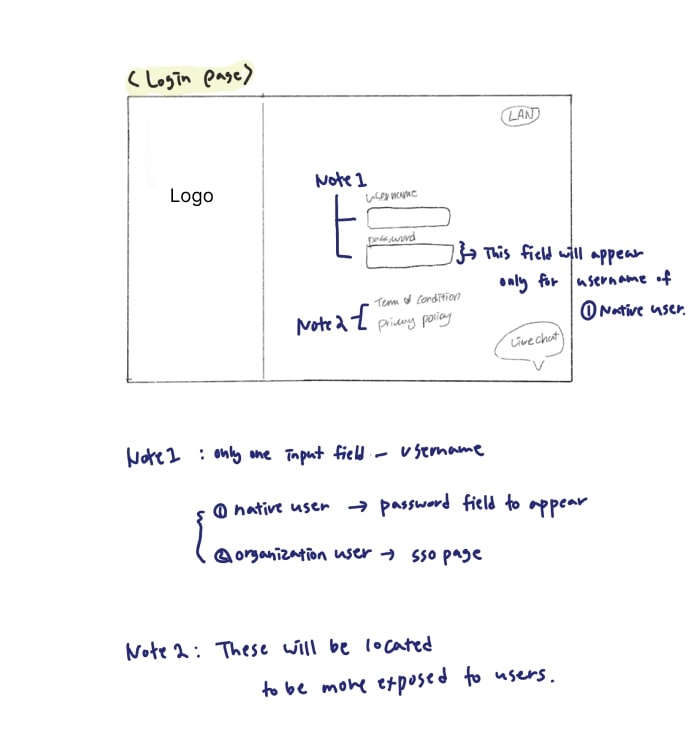 < Login page >
LAN
Logo
Note 1
username
password
→ This field will appear
only for username of
① Native user.
Term & condition
Note 2
privacy policy
Live chat
Note 1 : only one input field - username
① native user → password field to appear
② organization user → sso page
Note 2 : These will be located
to be more exposed to users.